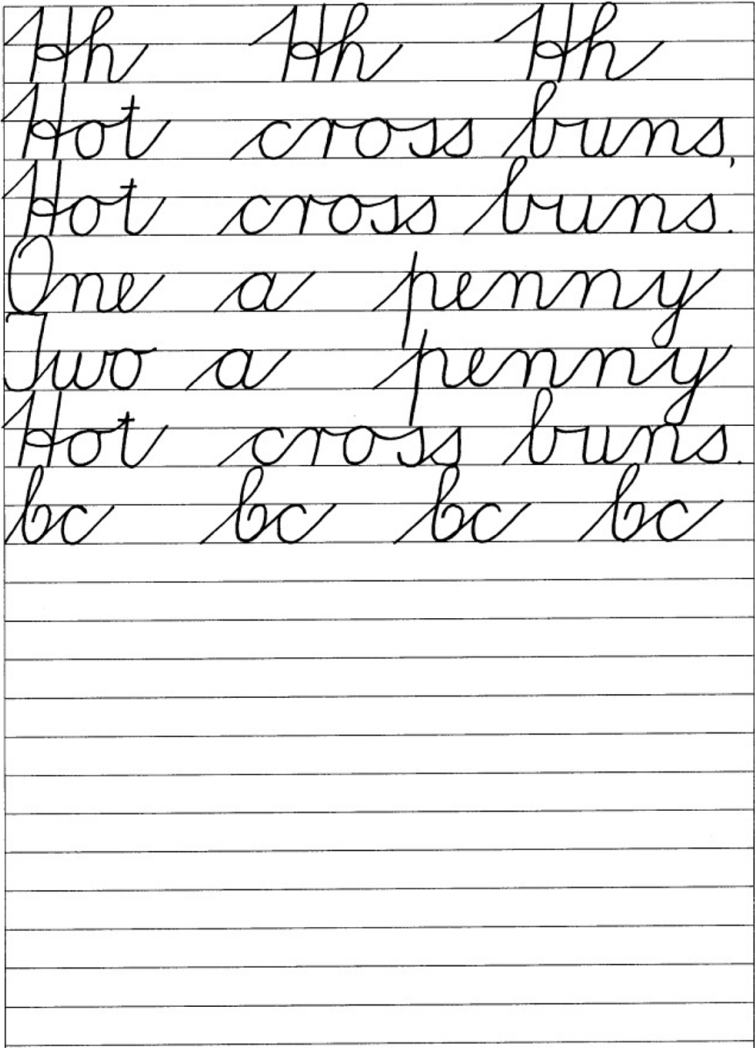 Hh Hh Hh
Hot cross buns,
Hot cross buns.
One a penny
Two a penny
Hot cross buns.
bc bc bc bc